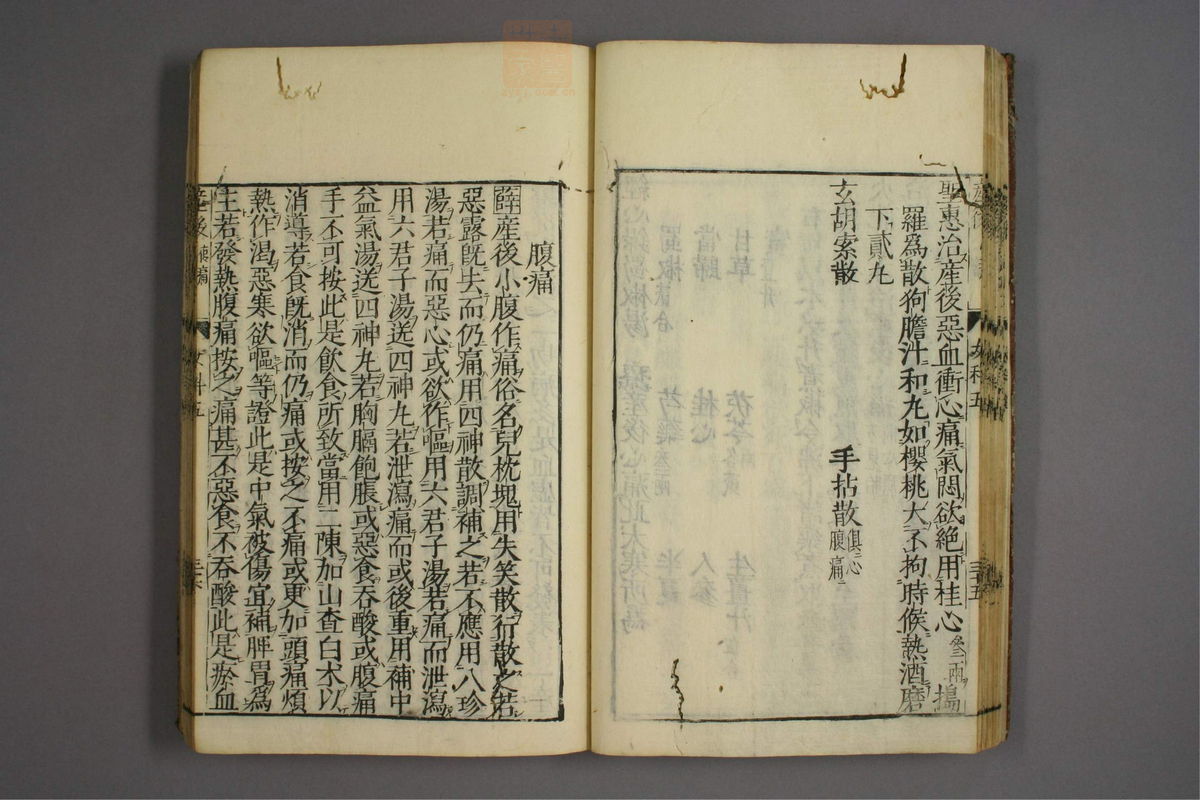 聖惠治產後惡血衝心痛氣悶欲絕用桂心叄兩搗
羅為散狗膽汁和丸如櫻桃大不拘時候熱酒磨
下貳丸
玄胡索散 手拈散俱心腹痛
腹痛
薛產後小腹作痛俗名兒枕塊用失笑散行散之若
惡露旣去而仍痛用四神散調補之若不應用八珍
湯若痛而惡心或欲作嘔用六君子湯若痛而泄瀉
用六君子湯送四神丸若泄瀉痛而或後重用補中
益氣湯送四神丸若胸膈飽脹或惡食吞酸或腹痛
手不可按此是飲食所致當用二陳加山查白朮以
消導若食旣消而仍痛或按之不痛或更加頭痛煩
熱作渴惡寒欲嘔等證此是中氣被傷宜補脾胃爲
主若發熱腹痛按之痛甚不惡食不吞酸此是瘀血
產後腹痛 女科五